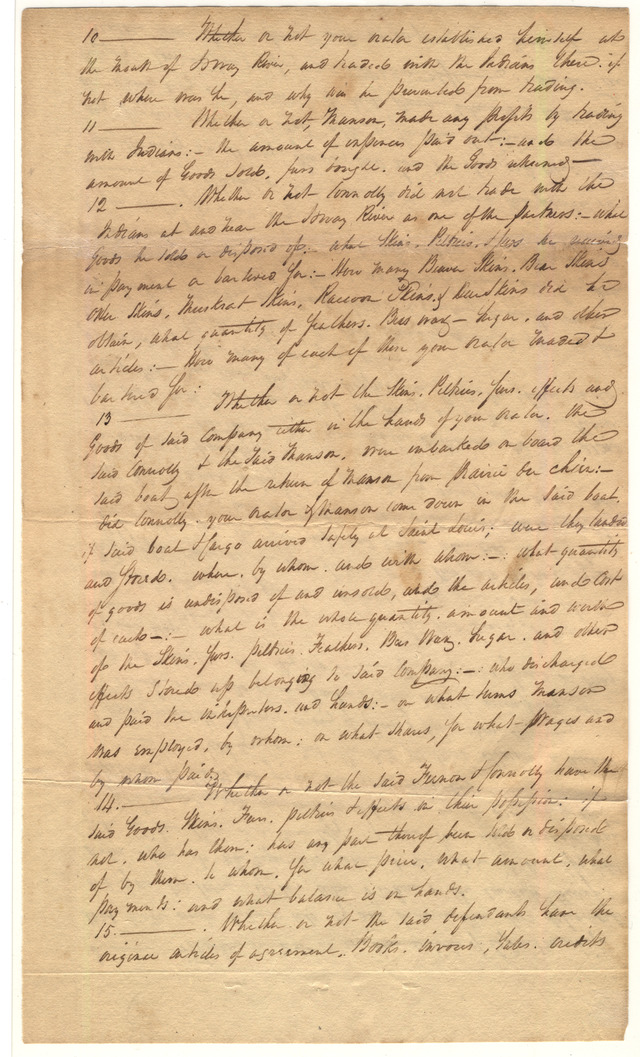 10 ——— Whether or not your orator established himself at
the mouth of Ioway River, and traded with the Indians there: if
not where was he, and why was he prevented from trading.
11 ——— Whether or not, Manson, made any profits by trading
with Indians:- the amount of expences paid out:- and the
amount of Goods sold, furs bought. and the Goods returned —
12 ———. Whether or not Connolly did not trade with the
Indians at and near the Ioway River as one of the partners:- what
Goods he sold or disposed of:- what Skins, Peltries, & furs he received
in payment or bartered for:- How many Beaver Skins. Bear Skins
Otter Skins, Muskrat Skins, Raccoon Skins, & Deer Skins did he
obtain, what quantity of feathers. Bees wax - Sugar, and other
articles:- How many of each of these your orator traded &
bartered for:
13 ——— Whether or not the Skins. Peltries. furs. effects and
Goods of said Company either in the hands of your orator. the
said Connolly & the said Manson, were embarked on board the
said boat, after the return of Manson from Prairie der chien:-
Did Connolly, your orator & Manson come down in the said boat,
if said boat & Cargo arrived safely at Saint Louis; were they landed
and stored. where, by whom. and with whom:-: what quantity
of goods is undisposed of and unsold, and the articles, and Cost
of each -:- what is the whole quantity. amount and worth
of the Skins. furs. peltries. Feathers. Bees Wax. Sugar. and other
effects stored up belonging to said Company:-: who discharged
and paid the and hands:- on what terms Manson
was employed, by whom: on what shares, for what Wages and
by whom paid.
14. ——— Whether or not the said & Connolly have the
said Goods. Skins. Furs. peltries & effects in their possession: if
not. who has them: has any part thereof been sold or disposed
of by them. to whom. for what price. what amount, what
payments: and what balance is on hands.
15. ———. Whether or not the said defendants have the
original articles of agreement. Books. invoices, Sales. credits